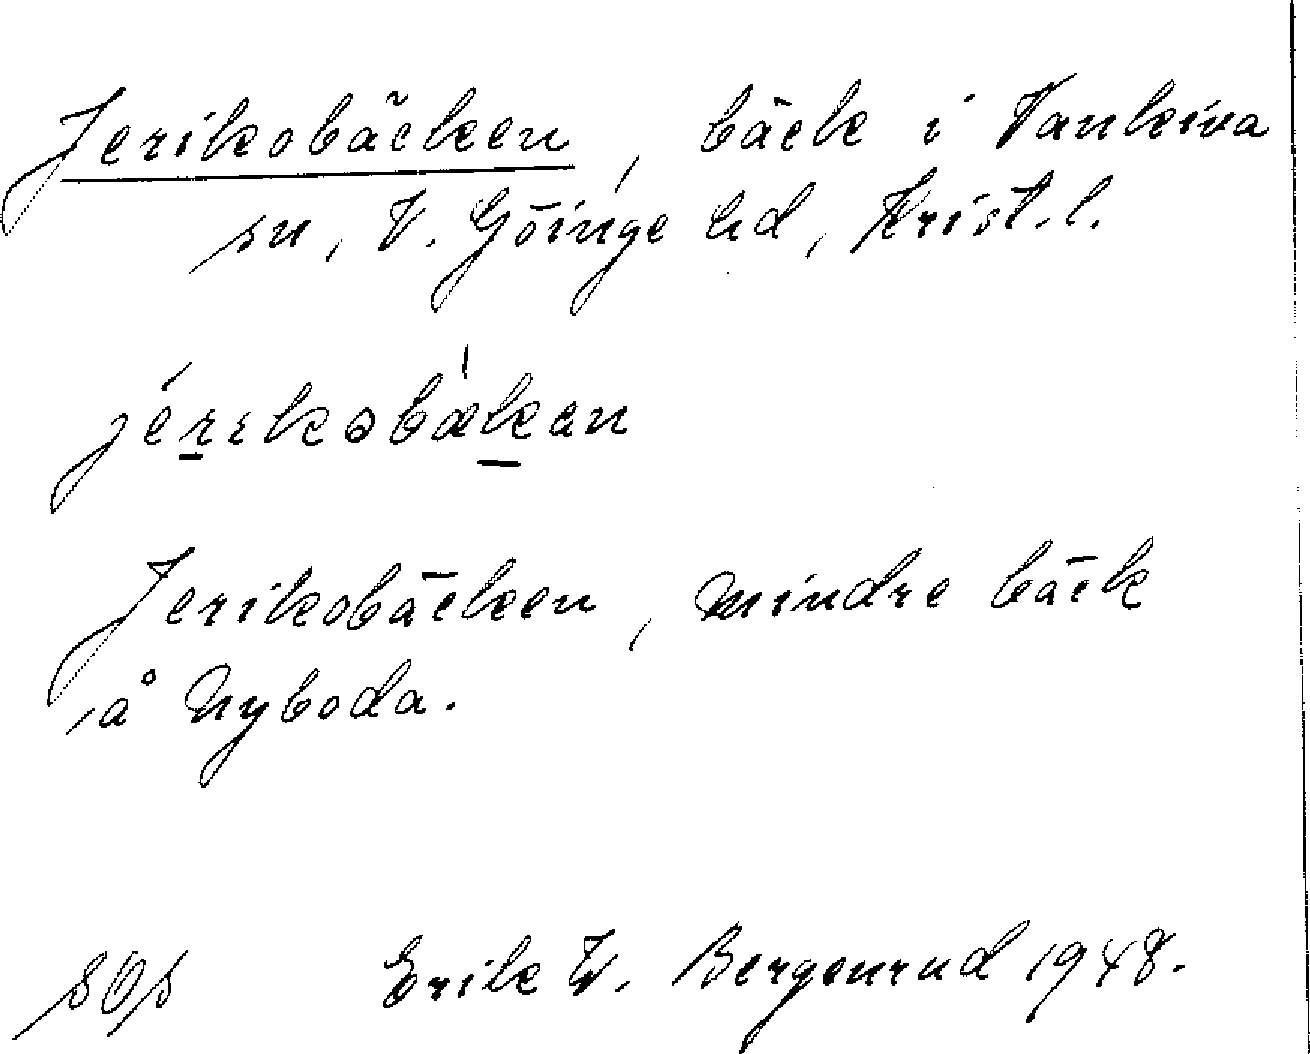 Jerikobäcken, bäck i Vankiva
sn, V. Göinge hd, Krist. l.
jérikobǽkan
Jerikobäcken, mindre bäck
å Nyboda.
Erik W. Bergenrud 1948.